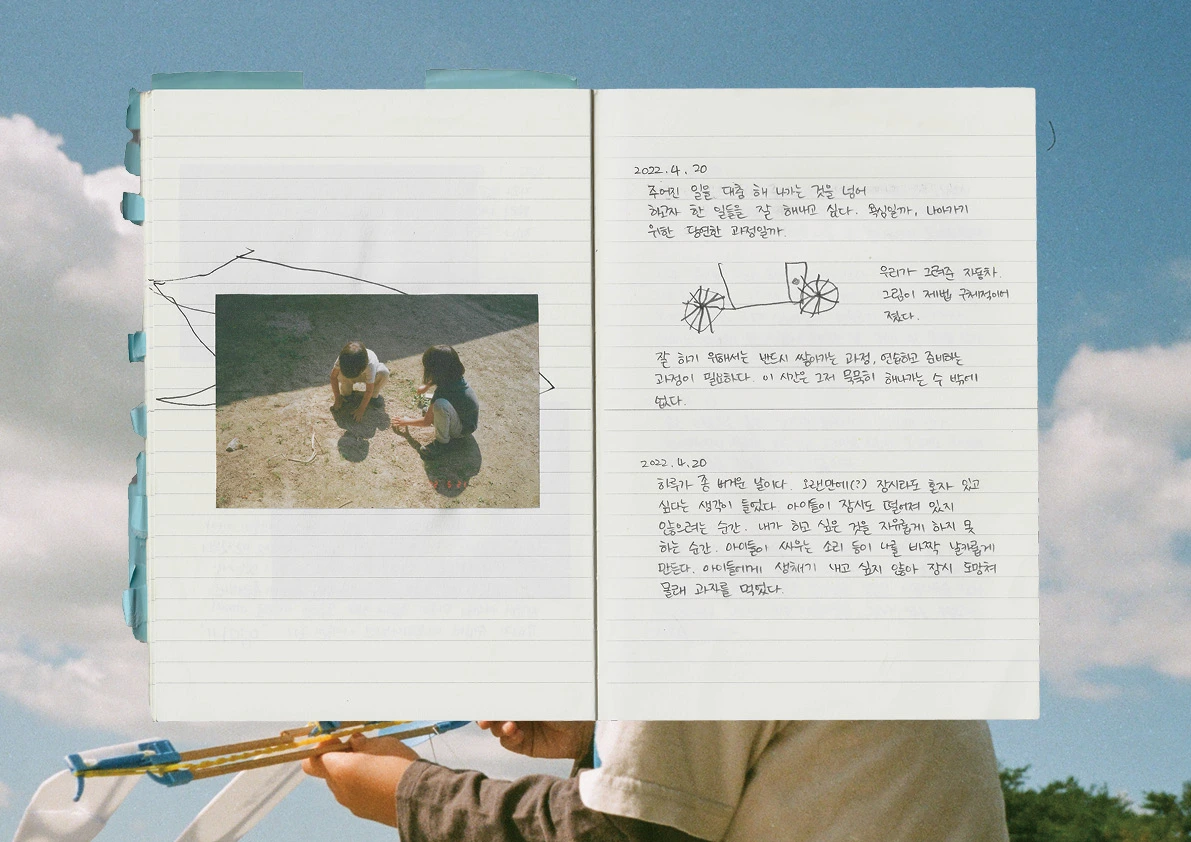 2022.4.20
주어진 일을 대충 해 나가는 것을 넘어
하고자 한 일들을 잘 해내고 싶다. 욕심일까, 나아가기
위한 당연한 과정일까.
우리가 그려준 자동차.
그림이 제법 구체적이어
졌다.
잘 하기 위해서는 반드시 쌓아가는 과정, 연습하고 준비하는
과정이 필요하다. 이 시간은 그저 묵묵히 해나가는 수 밖에
없다.
2022.4.20
하루가 좀 버거운 날이다. 오랜만에(?) 잠시라도 혼자 있고
싶다는 생각이 들었다. 아이들이 잠시도 떨어져 있지
않으려는 순간. 내가 하고 싶은 것을 자유롭게 하지 못
하는 순간. 아이들이 싸우는 소리 등이 나를 바짝 날카롭게
만든다. 아이들에게 생채기 내고 싶지 않아 잠시 도망쳐
몰래 과자를 먹었다.